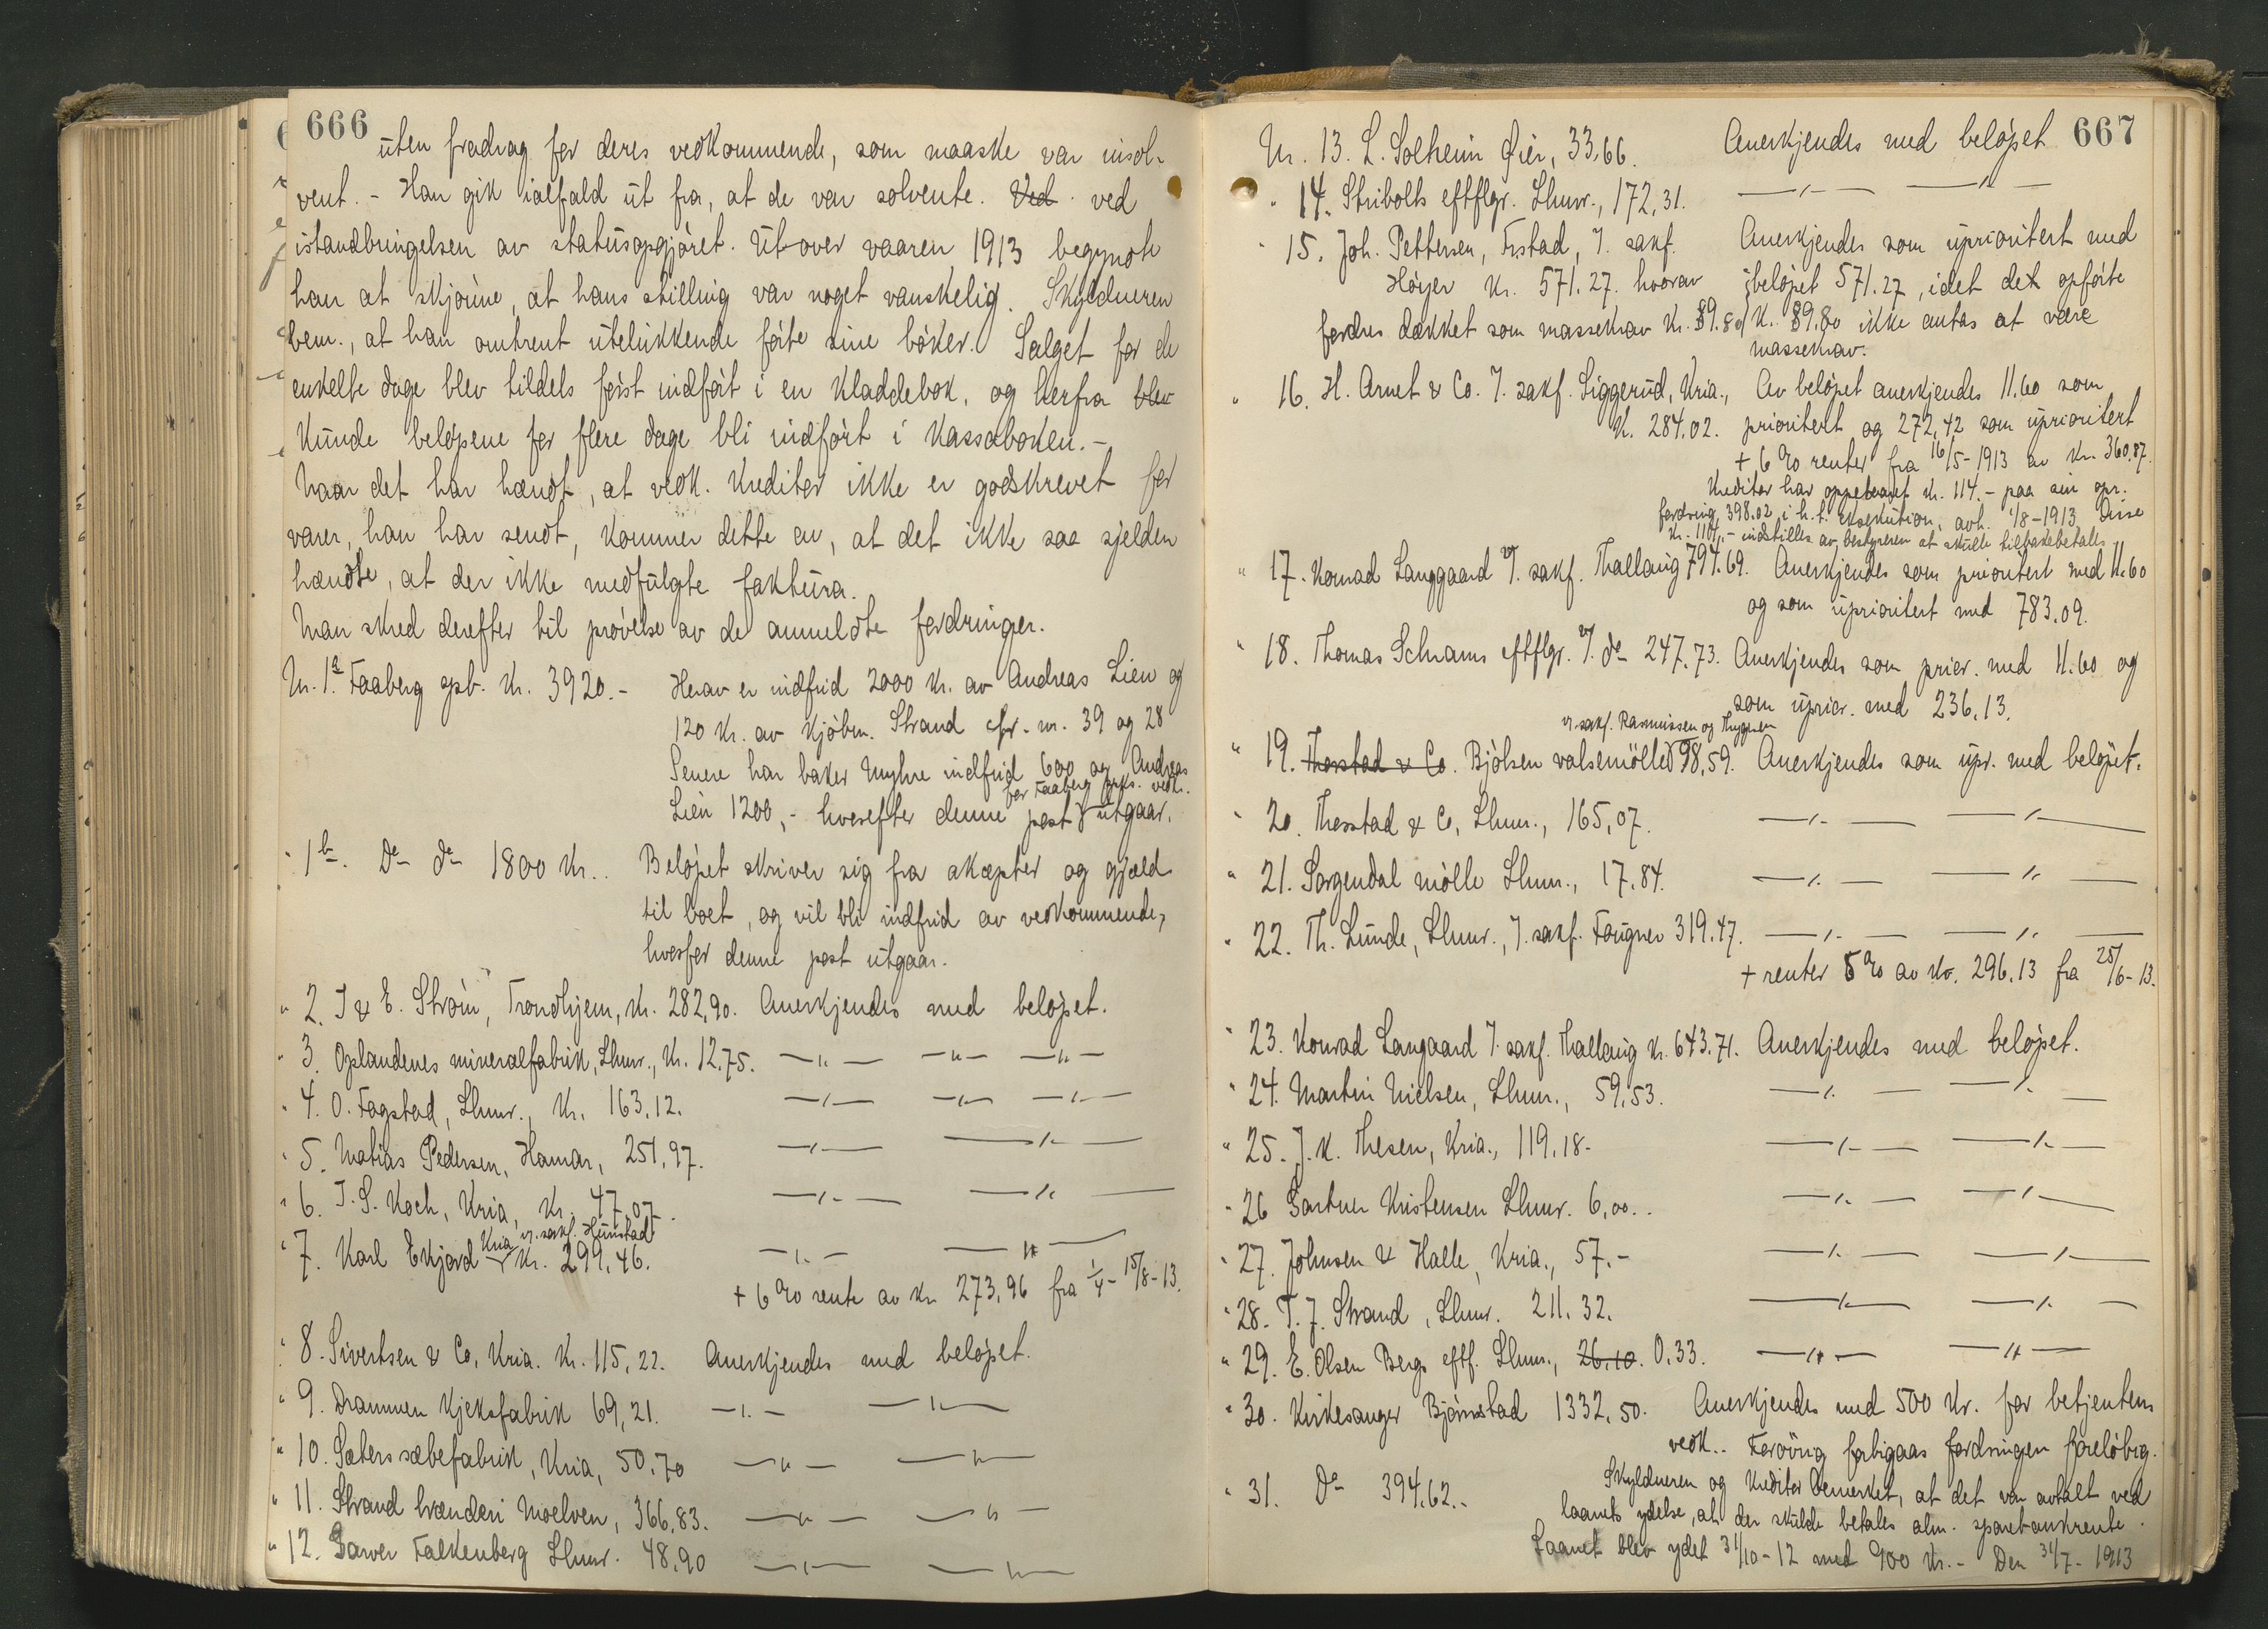 666
uten fradrag for deres vedkommende, som maaske var insol-
vent. - Han gik ialfald ut fra, at de var solvente. Ved ved
istandbringelsen av statusopgjøret. Utover vaaren 1913 begyndte
han at skjønne, at hans stilling var noget vanskelig. Skyldneren
bem., at han omtrent utelukkende førte sine bøker. Salget for de
enkelte dage blev tildels først indført i en kladdebok, og herfra blev
kunde beløpene for flere dage bli indført i kassaboken. -
Naar det har hændt, at vedk. kreditor ikke er godskrevet for
varer, han har sendt, kommer dette av, at det ikke saa sjelden
hændte, at der ikke medfulgte faktura.
Man skred derefter til prøvelse av de anmeldte fordringer.
Nr. 1a. Faaberg spb. kr. 3920.- Herav er indfrid 2000 kr. av Andreas Lien og
120 kr. av kjøbm. Strand cfr. nr. 39 og 28
Senere har baker Myhre indfrid 600 og Andreas
Lien 1200,- hvorefter denne post for Faaberg spks. vedk. utgaar.
" 1b. Do do 1800 kr.. Beløpet skriver sig fra aksepter og gjæld
til boet, og vil bli indfrid av vedkommende,
hvorfor denne post utgaar.
" 2. I & E. Strøm, Trondhjem, kr. 282,90. Anerkjendes med beløpet.
" 3. Oplandenes mineralfabrik, Lhmr., kr. 12.75. -"- -"- -"-
" 4. O. Fagstad, Lhmr., kr. 163.12. -"- -"- -"-
" 5. Matias Pedersen, Hamar, 251,97. -"- -"-
" 6. I. S. Koch, Kria, kr. 47.07. -"- -"-
" 7. Karl Ekjord Kria v. sakf. Hunstad kr. 299.46. -"- -"-
+ 6 % rente av kr 273,96 fra 1/4 - 15/8-13.
" 8. Sivertsen & Co, Kria. kr. 115,22. Anerkjendes med beløpet.
" 9. Drammen Kjeksfabrik 69,21. -"- -"-
" 10. Sæters sæbefabrik, Kria, 50.70 -"- -"-
" 11. Strand brænderi Moelven, 366,83. -"- -"-
" 12. Garver Falkenberg Lhmr. 48,90 -"- -"-
667
Nr. 13. L. Solheim Øier, 33,66. Anerkjendes med beløpet
" 14. Stribolts eftflgr. Lhmr., 172,31. -"- -"-
" 15. Joh. Pettersen, Frstad, v. sakf. Anerkjendes som uprioritert med
Høyer kr. 571.27. hvorav beløpet 571.27, idet det opførte
fordres dækket som massekrav kr. 89.80 kr. 89,80 ikke antas at være
massekrav.
" 16. H. Arnet & Co. v. sakf. Liggerud, Kria., Av beløpet anerkjendes 11.60 som
kr. 284.02. prioritert og 272,42 som uprioritert
+ 6 % renter fra 16/5-1913 av kr. 360,87.
Kreditor har oppebaaret kr. 114.- paa sin opr.
fordring 398.02 i h. t. eksekution, avh. 1/8-1913. Disse
kr. 114,- indstilles av bestyreren at skulle tilbakebetales.
" 17. Konrad Langgaard v. sakf. Thallaug 794.69. Anerkjendes som prioritert med 11.60
og som uprioritert med 783.09.
" 18. Thomas Schrams eftflgr. v. do 247.73. Anerkjendes som prior. med 11.60 og
som uprior. med 236.13.
v. sakf. Rasmussen og Thygesen
" 19. Thorstad & Co. Bjølsen valsemølle 98,59. Anerkjendes som upr. med beløpet.
" 20. Thorstad & Co, Lhmr., 165,07. -"- -"-
" 21. Sorgendal mølle Lhmr., 17.84. -"- -"-
" 22. Th. Lunde, Lhmr., v. sakf. Fougner 319.47. -"- -"-
+ renter 5 % av kr. 296.13 fra 25/6-13.
" 23. Konrad Langaard v. sakf. Thallaug kr. 643.71. Anerkjendes med beløpet.
" 24. Martin Nielsen, Lhmr., 59,53. -"- -"-
" 25. J. K. Thesen, Kria., 119.18- -"- -"-
" 26 Gartner Kristensen Lhmr. 6,00.. -"- -"-
" 27. Johnsen & Halle, Kria., 57.- -"- -"-
" 28. T. J. Strand, Lhmr. 211.32. -"- -"-
" 29. E. Olsen Bergs eftf. Lhmr., 26.10. 0.33. -"- -"-
" 30. Kirkesanger Bjørnstad 1332,50. Anerkjendes med 500 kr. for betjentens
vedk.. Forøvrig forbigaas fordringen foreløbig.
" 31. Do 394.62.. Skyldneren og kreditor bemerket, at det var avtalt ved
laanets ydelse, at der skulde betales alm. sparebankrente.
Laanet blev ydet 31/10-12 med 900 kr.- Den 31/7-1913